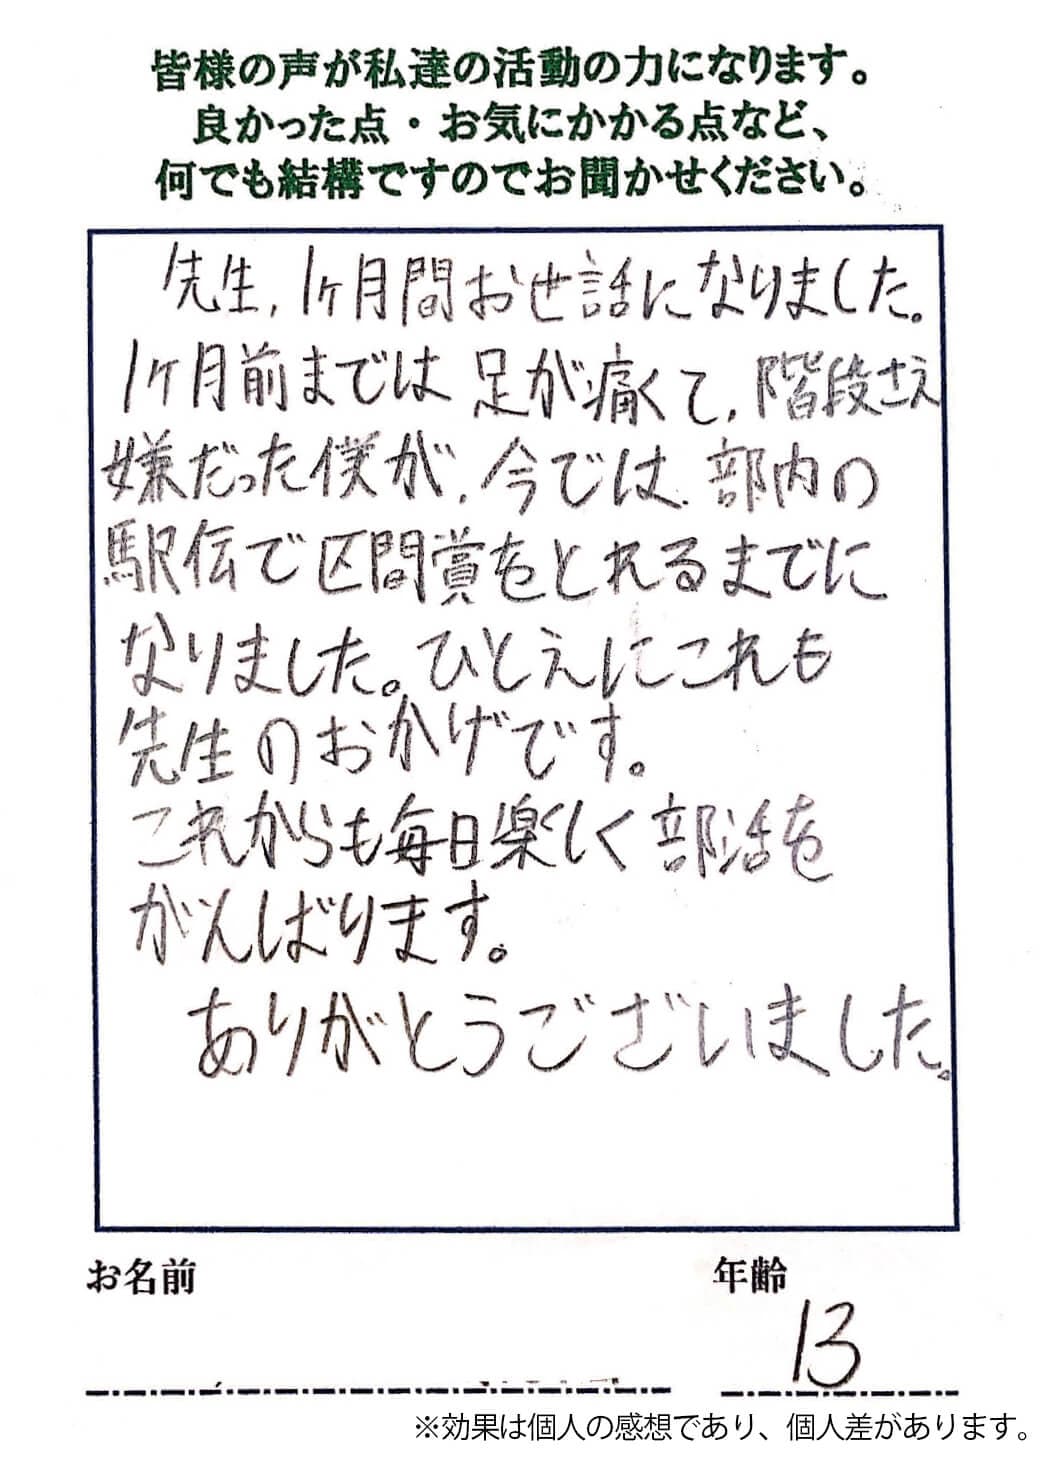 皆様の声が私達の活動の力になります。
良かった点・お気にかかる点など、
何でも結構ですのでお聞かせください。
先生，1ヶ月間お世話になりました。
1ヶ月前までは足が痛くて，階段さえ
嫌だった僕が，今では，部内の
駅伝で区間賞をとれるまでに
なりました。ひとえにこれも
先生のおかげです。
これからも毎日楽しく部活を
がんばります。
ありがとうございました。
お名前 年齢
13
※効果は個人の感想であり、個人差があります。